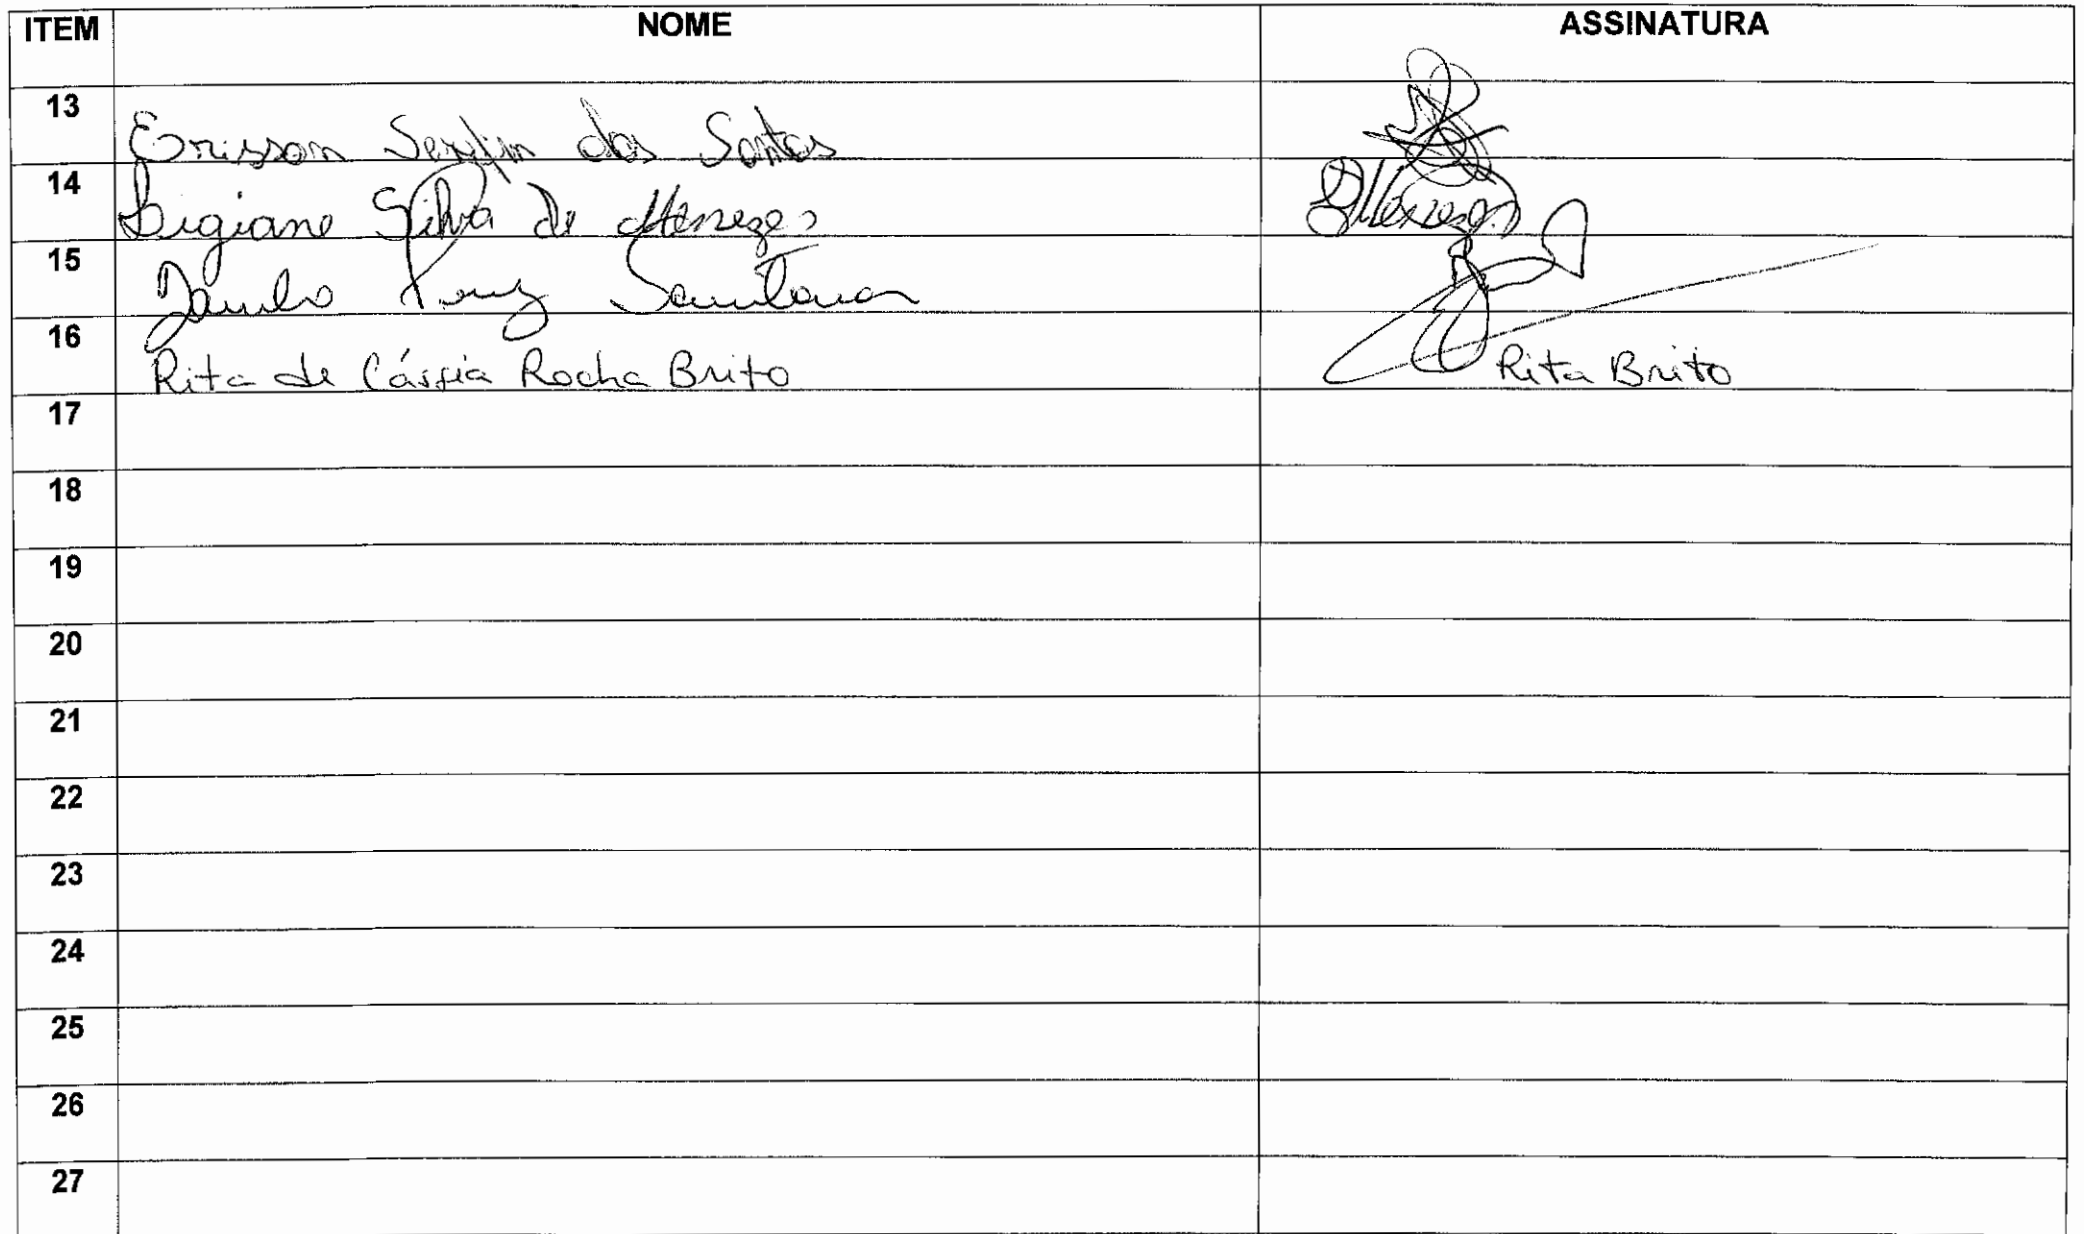 ITEM NOME ASSINATURA
13 Erisson Serafim dos Santos
14 Ligiane Silva de Menezes LMenezes
15 Santana
16 Rita de Cássia Rocha Brito Rita Brito
17
18
19
20
21
22
23
24
25
26
27